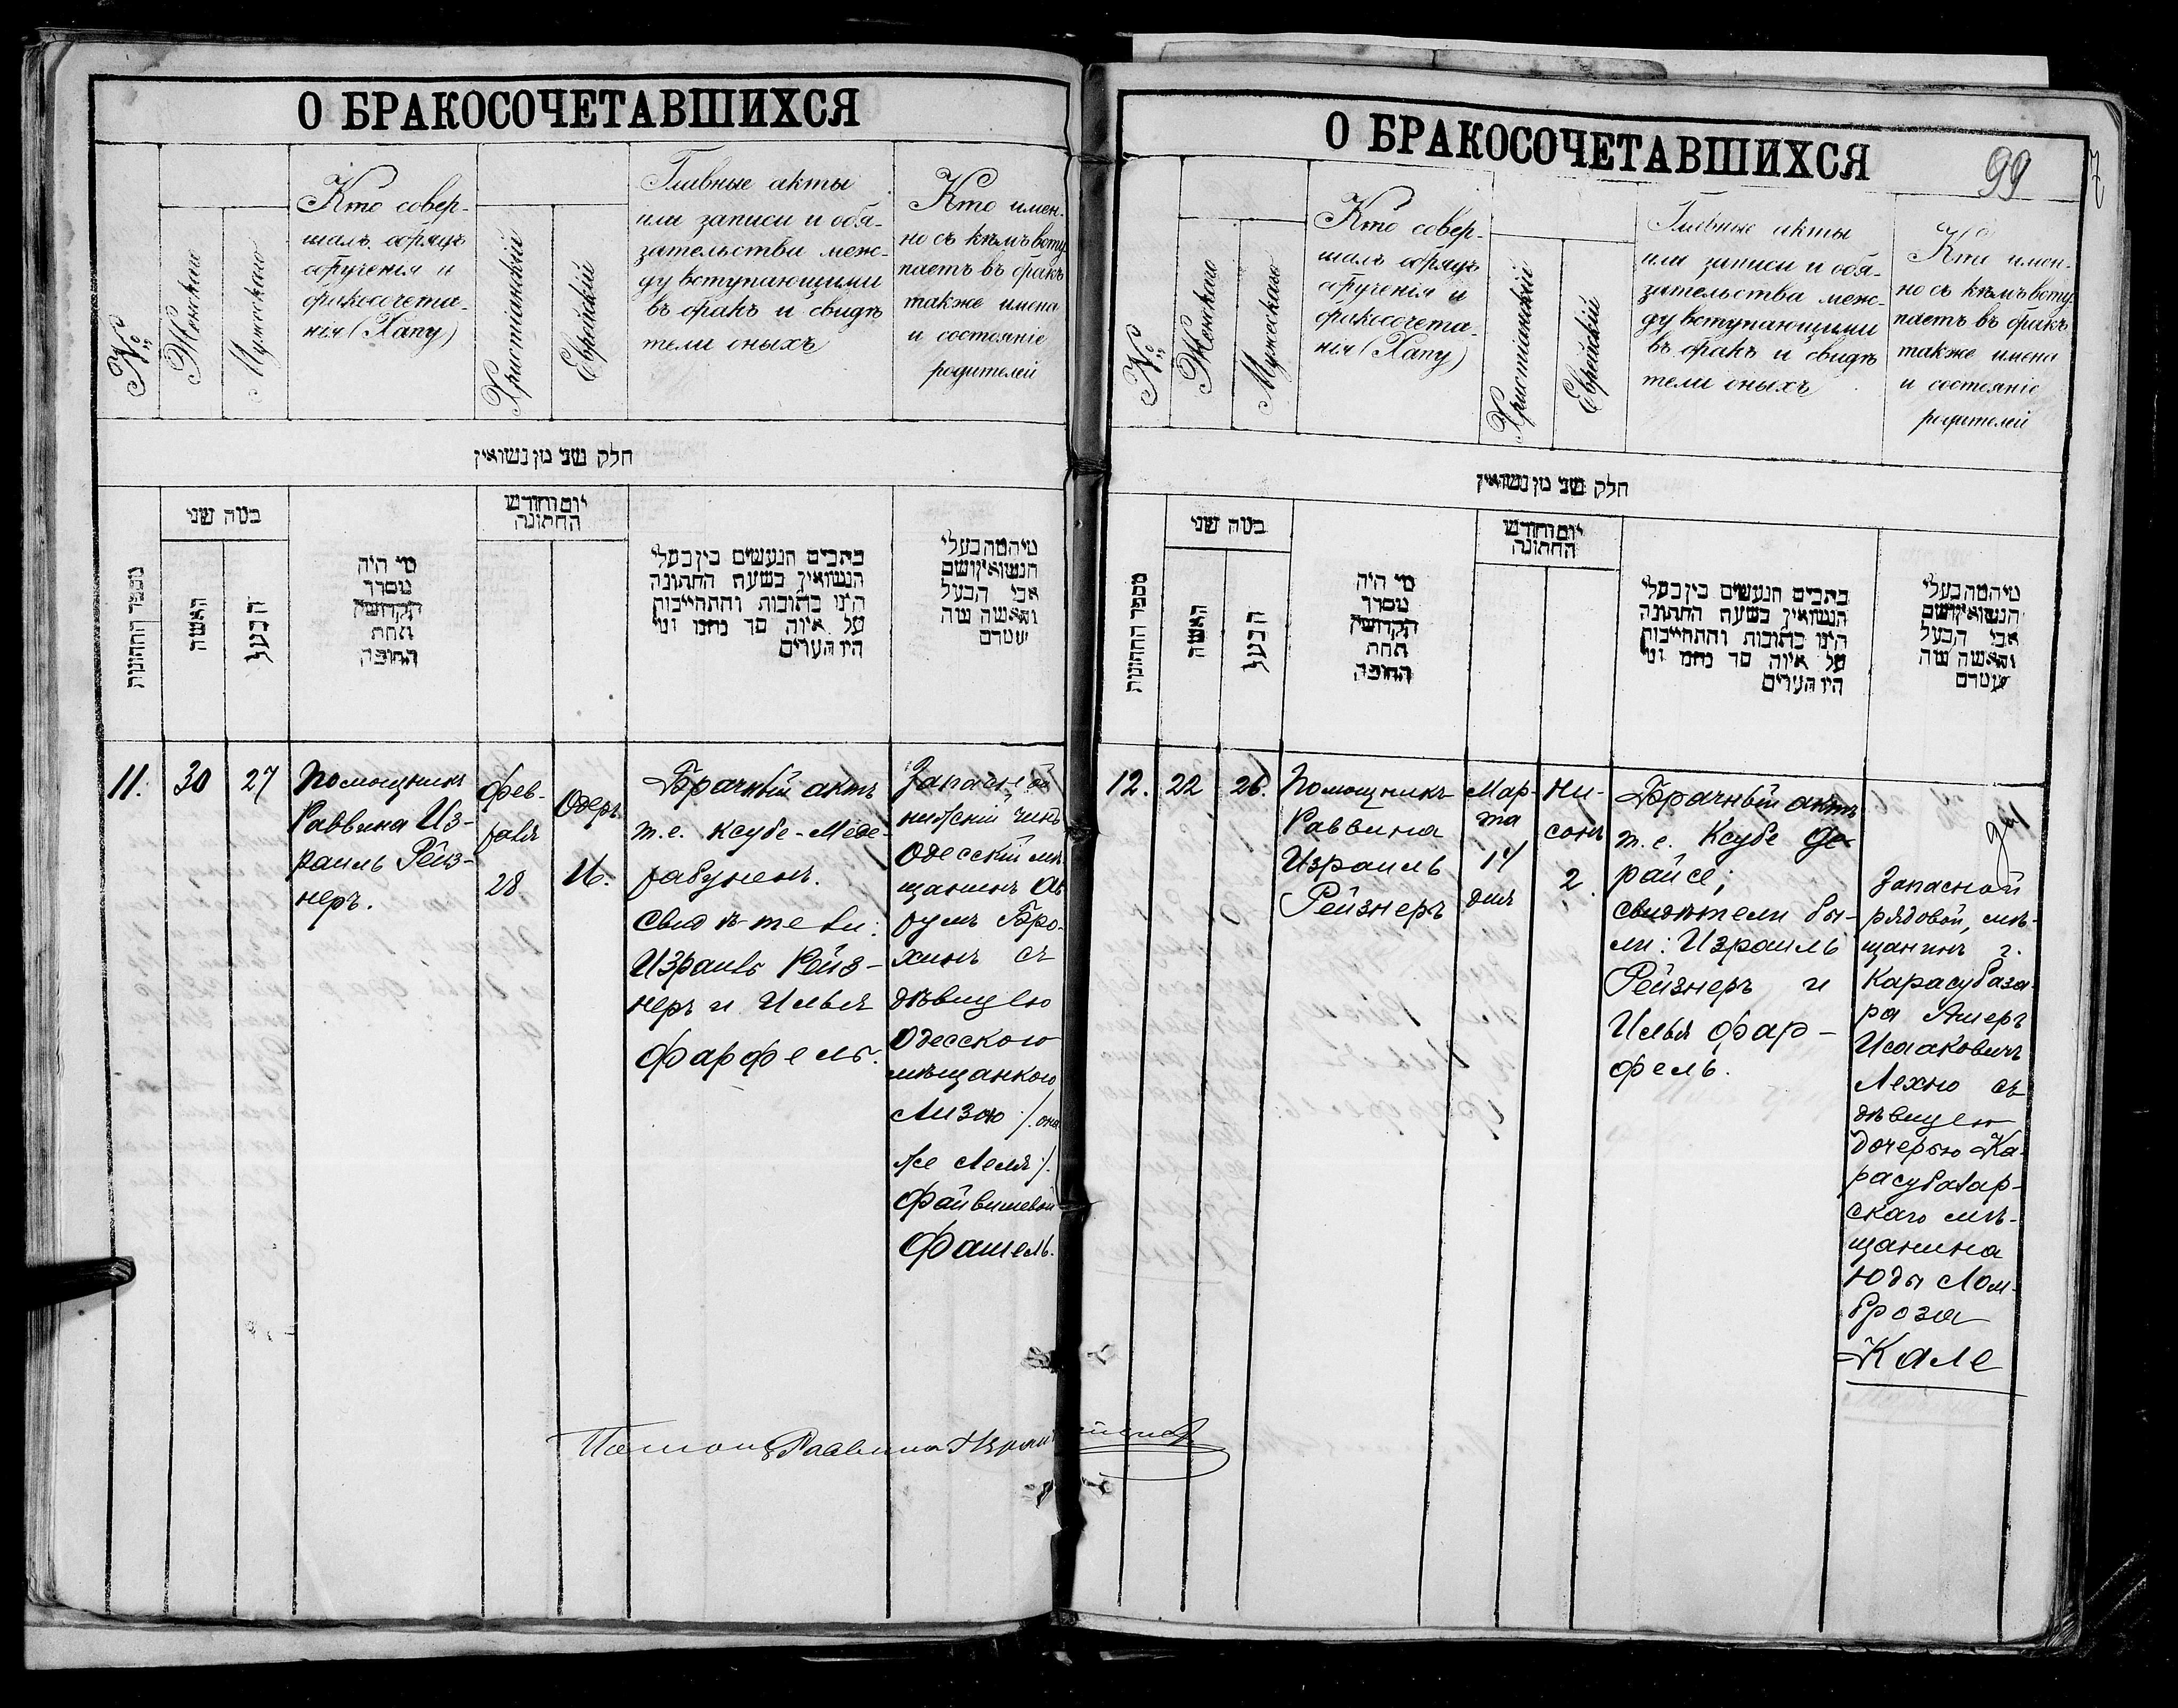 О БРАКОСОЧЕТАВШИХСЯ
№
Женскаго
Мужескаго
Кто совер-
шалъ обрядъ
обрученія и
бракосочета-
нія (Хапу)
Христіанскій
Еврейскій
Главные акты
или записи и обя-
зательства меж-
ду вступающими
въ бракъ и свидѣ
тели оныхъ
Кто имен-
но съ кѣмъ всту
паетъ въ бракъ
также имена
и состояніе
родителей
חלק שני מן נשואין
מספר החתונות
כמה שני
האשה
הבעל
מי היה
מסדר
הקדושין
תחת
החופה
יום וחודש
החתונה
כתבים הנעשים בין בעלי
הנשואין בשעת החתונה
היינו כתובות והתחייבות
על איזה סך
היו העדים
הנשואין ושם
אבי הבעל
11.
30
27
Помощникъ
Раввина Из-
раиль Рейз-
неръ.
Фев-
раля
28
Одеръ
16.
Брачный актъ
т.е. ксубе-Меде-
рабуненъ.
Свидѣтели:
Израиль Рейз-
неръ и Илья
Фарфель.
Запасной
нижній чинъ
Одесскій мѣ
щанинъ Ав
румъ Бро-
хинъ съ
дѣвицею
Одесскою
мѣщанкою
Лизою /. она
же Леля ./.
Файвишевой
Фашель.
Помощ Раввина Израиль Рейзнеръ
О БРАКОСОЧЕТАВШИХСЯ
99
№
Женскаго
Мужескаго
Кто совер-
шалъ обрядъ
обрученія и
бракосочета-
нія (Хапу)
Христіанскій
Еврейскій
Главные акты
или записи и обя-
зательства меж-
ду вступающими
въ бракъ и свидѣ
тели оныхъ
Кто имен-
но съ кѣмъ всту
паетъ въ бракъ
также имена
и состояніе
родителей
חלק שני מן נשואין
מספר החתונות
כמה שני
האשה
הבעל
מי היה
מסדר
הקדושין
תחת
החופה
יום וחודש
החתונה
כתבים הנעשים בין בעלי
הנשואין בשעת החתונה
היינו כתובות והתחייבות
על איזה סך
היו העדים
הנשואין ושם
אבי הבעל
12.
22
26.
Помощникъ
Раввина
Израиль
Рейзнеръ
Мар-
та
14
дня
Ни-
сонъ
2.
Брачный актъ
т.е. Ксубе Де-
райсе;
свидѣтели бы-
ли: Израиль
Рейзнеръ и
Илья Фар-
фель.
Запасной
рядовой, мѣ-
щанинъ г.
Карасубаза-
ра Ашеръ
Исааковичъ
Лехно съ
дѣвицею
дочерью Ка-
расубазар-
скаго мѣ-
щанина
Юды Лом-
броза
Кале